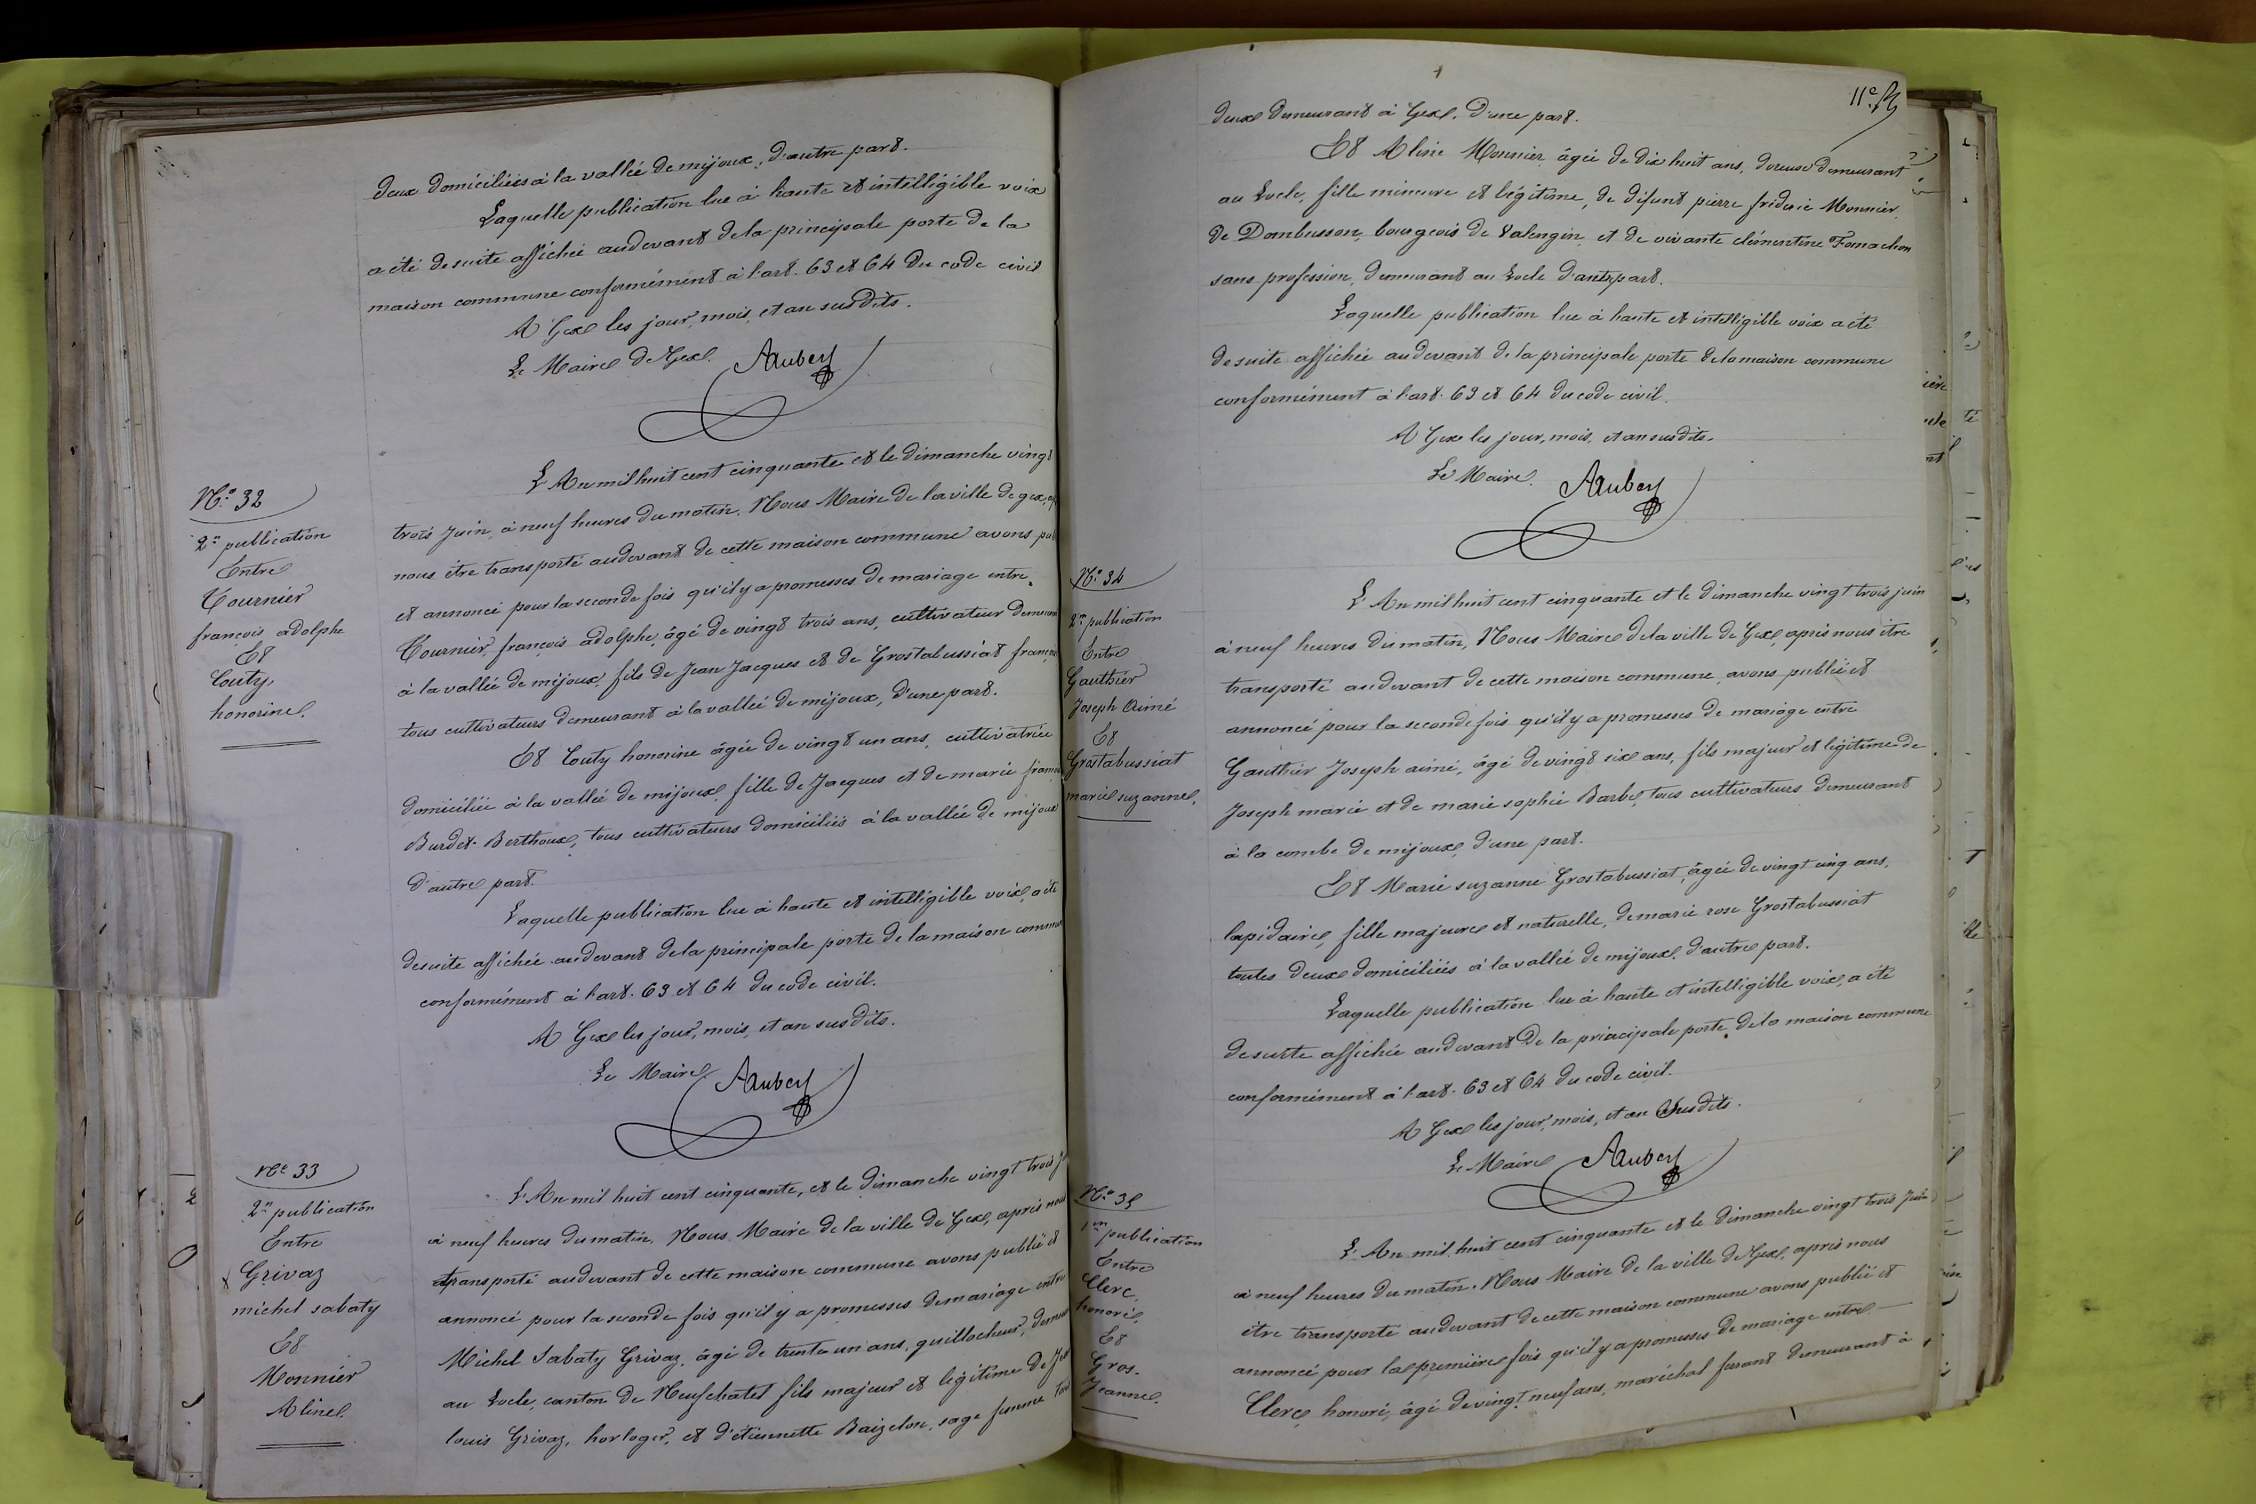 deux domiciliés à la vallée de mijoux, d'autre part.
Laquelle publication lue à haute et intelligible voix
a été de suite affichée audevant de la principale porte de la
maison commune conformément à l'art. 63 et 64 du code civil
A Gex les jour, mois, et an susdits.
Le Maire de Gex. Aubery
N.° 32
2.me publication
Entre
Tournier
françois adolphe
Et
Couty,
honorine.
L'An mil huit cent cinquante et le dimanche vingt
trois Juin, à neuf heures du matin. Nous Maire de la ville de gex, ap
nous être transporté audevant de cette maison commune avons pub
et annoncé pour la seconde fois qu'il y a promesses de mariage entre
Tournier, françois adolphe, âgé de vingt trois ans, cultivateur demeuran
à la vallée de mijoux, fils de Jean Jacques et de Grostabussiat françoi
tous cultivateurs demeurant à la vallée de mijoux, d'une part.
Et Couty honorine âgée de vingt un ans, cultivatrice
domiciliée à la vallée de mijoux, fille de Jacques et de marie franço
Burdet-Berthoux, tous cultivateurs domiciliés à la vallée de mijoux
d'autre part.
Laquelle publication lue à haute et intelligible voix, a été
de suite affichée audevant de la principale porte de la maison commun
conformément à l'art. 63 et 64 du code civil.
A Gex les jour, mois, et an susdits.
Le Maire Aubery
N.° 33
2.me publication
Entre
Grivaz
michel sabaty
Et
Monnier
Aline.
L'An mil huit cent cinquante, et le dimanche vingt trois J
à neuf heures du matin. Nous Maire de la ville de Gex, après nous
transporté audevant de cette maison commune avons publié et
annoncé pour la seconde fois qu'il y a promesses de mariage entre
Michel Sabaty Grivaz, âgé de trente un ans, guillocheur, demeu
au Locle, canton de Neufchatel fils majeur et légitime de Je
louis Grivaz, horloger, et d'étiennette Baizelon, sage femme tou
11e f.
deux demeurant à Gex, d'une part.
Et Aline Monnier âgée de dix huit ans, doreuse demeurant
au Locle, fille mineure et légitime, de défunt pierre fréderic Monnier
de Dombresson, bourgeois de Valengin et de vivante clémentine Fornachon
sans profession, demeurant au Locle d'autre part.
Laquelle publication lue à haute et intelligible voix a été
de suite affichée audevant de la principale porte de la maison commune
conformément à l'art. 63 et 64 du code civil.
A Gex les jour, mois, et an susdits.
Le Maire. Aubery
N.° 34
2.me publication
Entre
Gauthier
Joseph Aimé
Et
Grostabussiat
marie suzanne.
L'An mil huit cent cinquante et le dimanche vingt trois juin
à neuf heures du matin, Nous Maire de la ville de Gex, après nous être
transporté audevant de cette maison commune, avons publié et
annoncé pour la seconde fois qu'il y a promesses de mariage entre
Gauthier Joseph aimé, âgé de vingt six ans, fils majeur et légitime de
Joseph marie et de marie sophie Barbe, tous cultivateurs demeurant
à la combe de mijoux, d'une part.
Et Marie suzanne Grostabussiat, âgée de vingt cinq ans,
lapidaire, fille majeure et naturelle, de marie rose Grostabussiat
toutes deux domiciliées à la vallée de mijoux, d'autre part.
Laquelle publication lue à haute et intelligible voix, a été
de suite affichée audevant de la principale porte de la maison commune
conformément à l'art. 63 et 64 du code civil.
A Gex les jour, mois, et an susdits.
Le Maire Aubery
N.° 35
1.re publication
Entre
Clerc
honoré,
Et
Gros-
Jeanne.
L'An mil huit cent cinquante et le dimanche vingt trois Juin
à neuf heures du matin. Nous Maire de la ville de Gex, après nous
être transporté audevant de cette maison commune avons publié et
annoncé pour la première fois qu'il y a promesses de mariage entre
Clerc honoré, âgé de vingt neuf ans, maréchal ferrant demeurant à